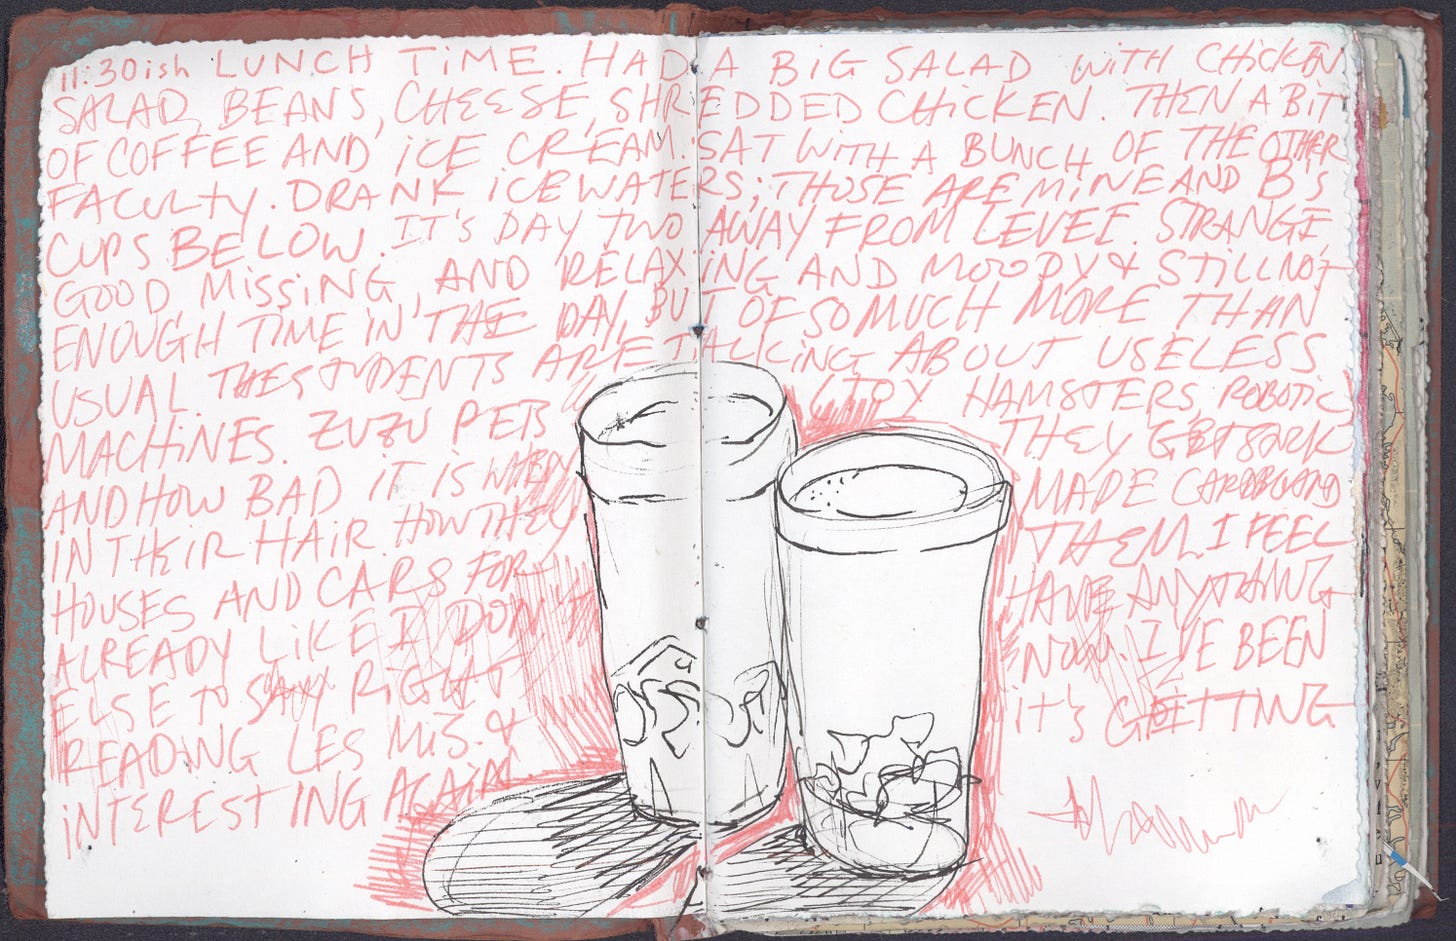 11:30ish LUNCH TIME. HAD A BIG SALAD WITH CHICKEN
SALAD, BEANS, CHEESE, SHREDDED CHICKEN. THEN A BIT
OF COFFEE AND ICE CREAM. SAT WITH A BUNCH OF THE OTHER
FACULTY. DRANK ICE WATERS; THOSE ARE MINE AND B'S
CUPS BELOW. IT'S DAY TWO AWAY FROM LEVEE. STRANGE,
GOOD MISSING, AND RELAXING AND MOODY & STILL NOT
ENOUGH TIME IN THE DAY, BUT OF SO MUCH MORE THAN
USUAL. THE STUDENTS ARE TALKING ABOUT USELESS
MACHINES. ZUZU PETS (TOY HAMSTERS, ROBOTIC
AND HOW BAD IT IS WHEN THEY GET STUCK
IN THEIR HAIR. HOW THEY MADE CARDBOARD
HOUSES AND CARS FOR THEM. I FEEL
ALREADY LIKE I DON'T HAVE ANYTHING
ELSE TO SAY RIGHT NOW. I'VE BEEN
READING LES MIS. & IT'S GETTING
INTERESTING AGAIN.